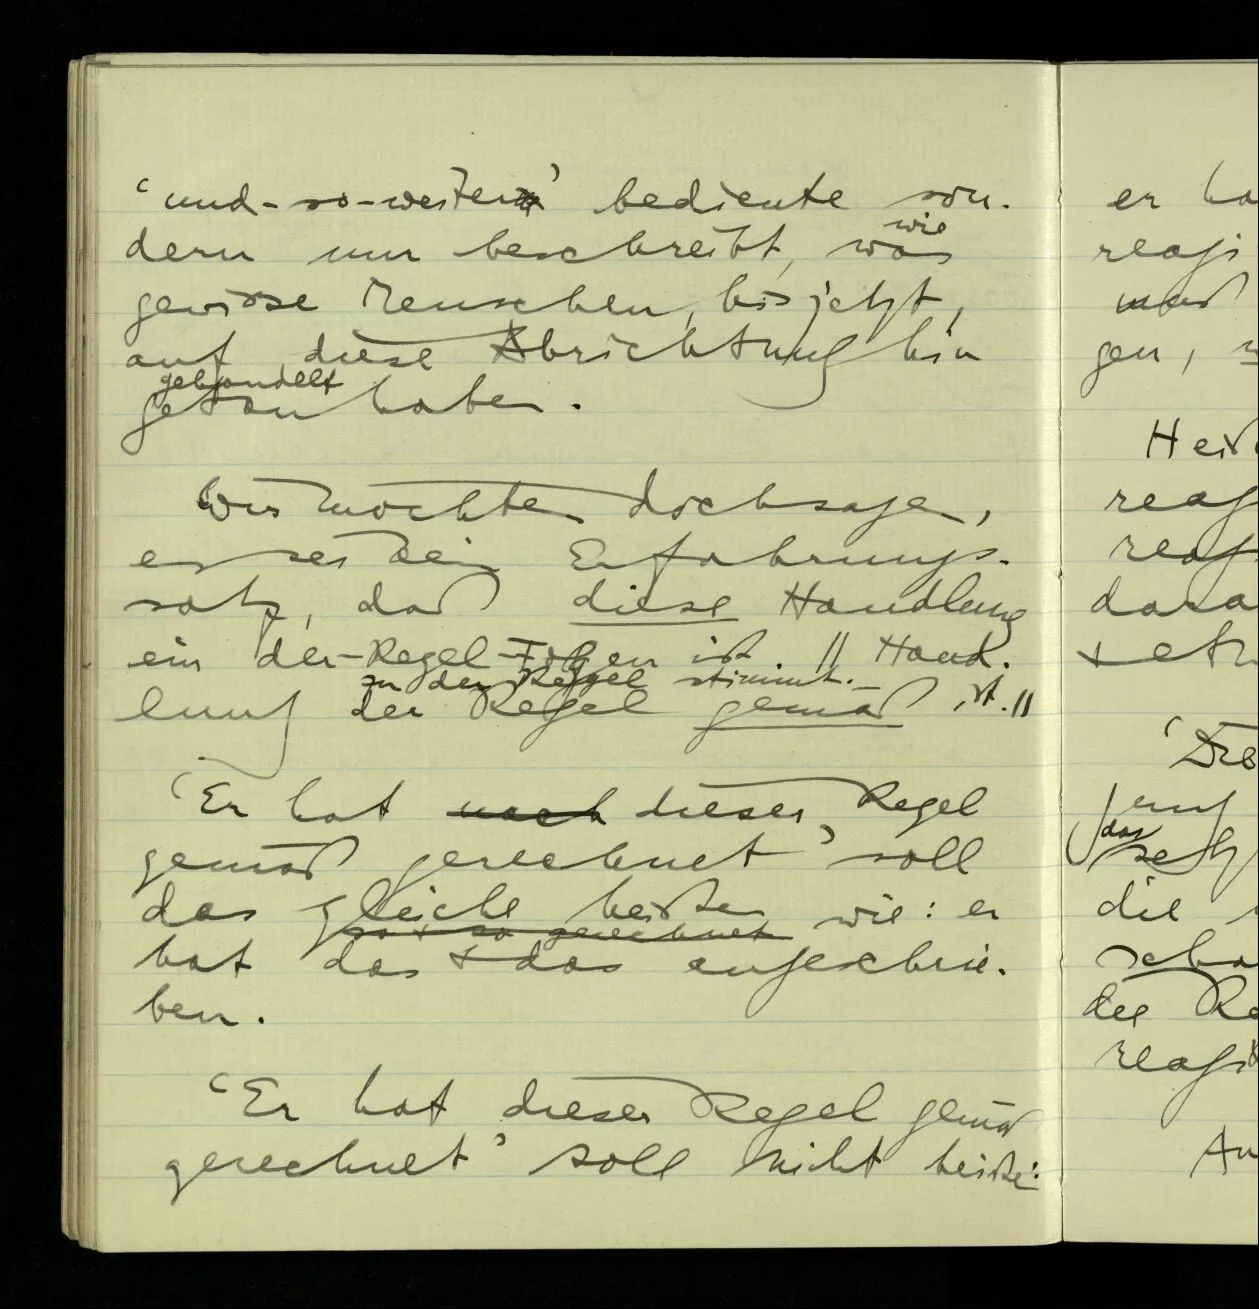 ‘und-so-weiter’ bediente son-
wie
dern nur beschreibt, was
gewisse Menschen, bis jetzt,
auf diese Abrichtung hin
gehandelt
getan haben.
Wir möchten doch sagen,
es sei kein Erfahrungs-
satz, daß diese Handlung
ein der-Regel-Folgen ist. || Hand-
zu der Regel stimmt.
lung der Regel gemäß ist. ||
‘Er hat nach dieser Regel
gemäß gerechnet’ soll
das gleiche heißen wie: er
so + so gerechnet
hat das + das angeschrie-
ben.
‘Er hat dieser Regel gemäß
gerechnet’ soll nicht heißen:
er ha
reagi
muß
gen,
Heiß
reag
reag
dara
+ etw
auf
das
die
scha
die Re
reagi
An